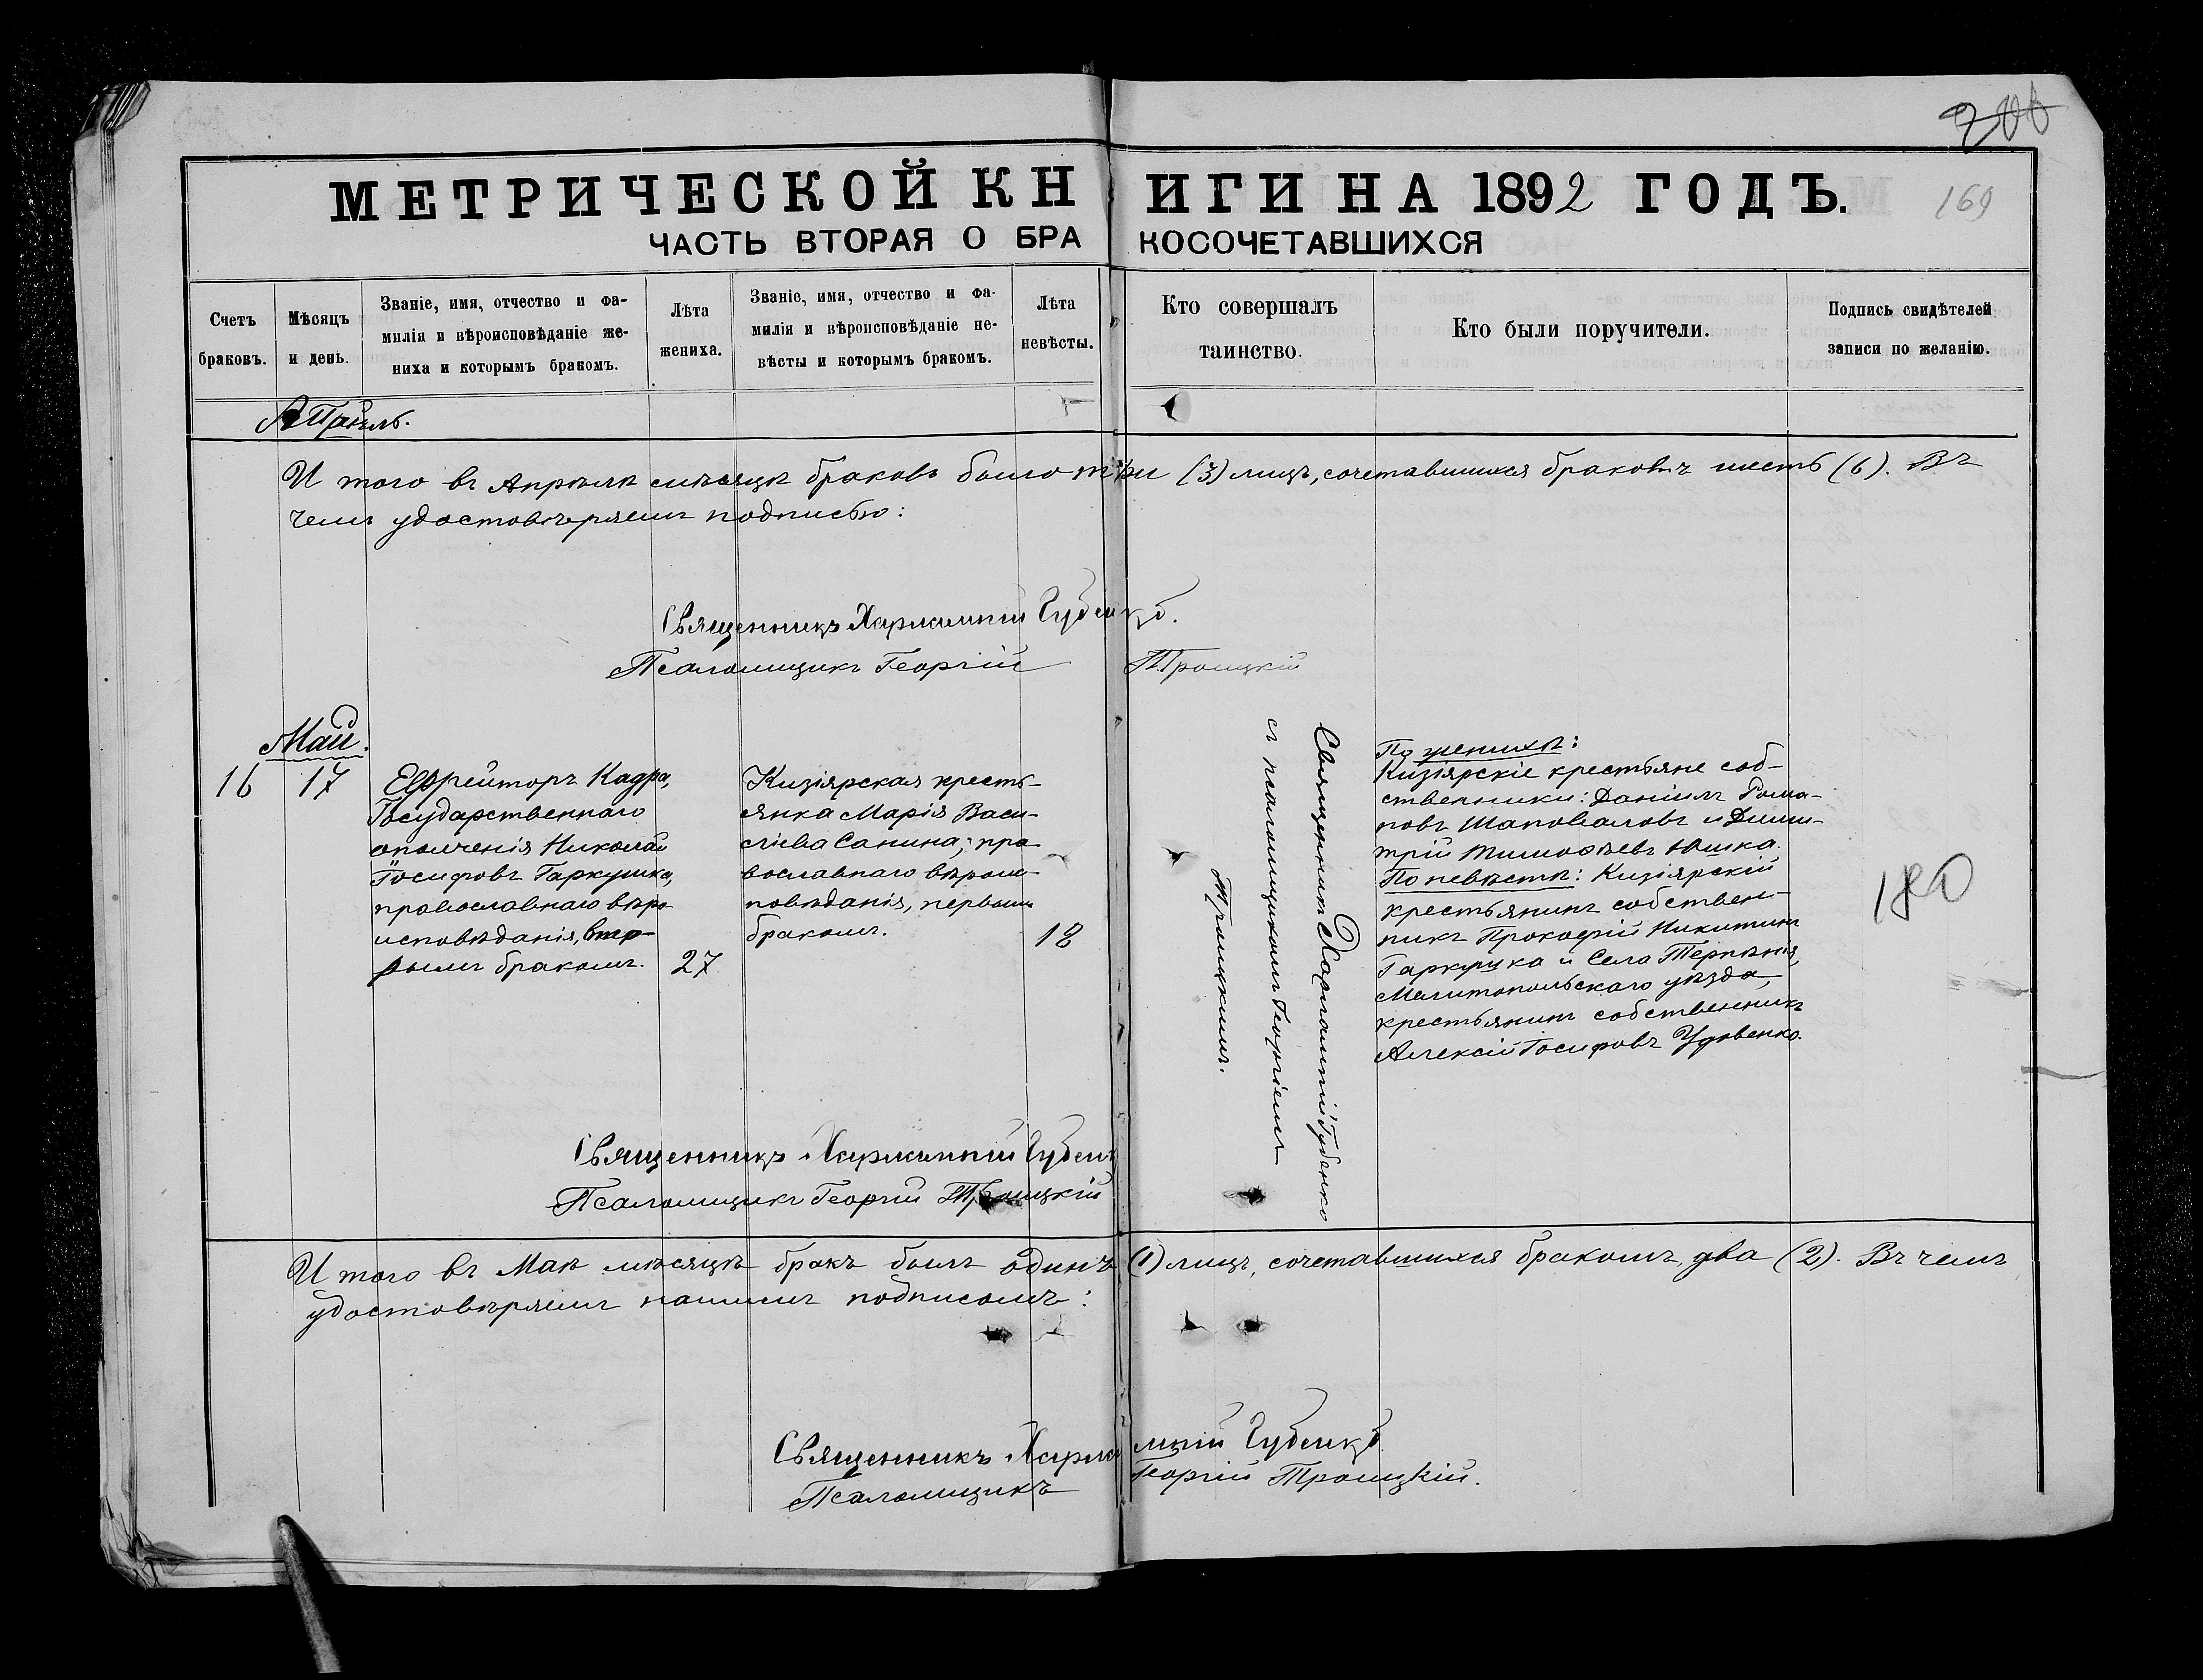 200
МЕТРИЧЕСКОЙ КНИГИ НА 1892 ГОДЪ.
169
ЧАСТЬ ВТОРАЯ О БРАКОСОЧЕТАВШИХСЯ
Счетъ
браковъ.
Мѣсяцъ
и день.
Званіе, имя, отчество и фа-
милія и вѣроисповѣданіе же-
ниха и которымъ бракомъ.
Лѣта
жениха.
Званіе, имя, отчество и фа-
милія и вѣроисповѣданіе не-
вѣсты и которымъ бракомъ.
Лѣта
невѣсты.
Кто совершалъ
таинство.
Кто были поручители.
Подпись свидѣтелей
записи по желанію.
Апрѣль.
И того въ Апрѣлѣ мѣсяцѣ браковъ было три (3) лицъ, сочетавшихся бракомъ шесть (6). Въ
чемъ удостовѣряемъ подписью:
Священникъ Харлампій Губенко.
Псаломщикъ Георгій Троицкій
Май.
16
17
Ефрейторъ Кадра,
Государственнаго
ополченія Николай
Іосифовъ Гаркуша,
православнаго вѣро-
исповѣданія,
бракомъ.
27
Кизіярская кресть-
янка Марія Васи-
ліева Санина; пра-
вославнаго вѣроис-
повѣданія, первымъ
бракомъ.
18
Священникъ Харлампій Губенко
съ псаломщикомъ Георгіемъ
Троицкимъ.
По женихѣ:
Кизіярскіе крестьяне соб-
ственники: Даніилъ Рома-
новъ Шаповаловъ и Дими-
трій Тимоѳѣевъ Юшка.
По невѣстѣ: Кизіярскій
крестьянинъ собствен-
никъ Прокофій Никитинъ
Гаркуша и Села Терпѣнія,
Мелитопольскаго уѣзда,
крестьянинъ собственникъ
Алексій Іосифовъ Удовенко.
180
Священникъ Харлампій Губенк
Псаломщикъ Георгій Троицкій
И того въ Маѣ мѣсяцѣ бракъ былъ одинъ (1) лицъ, сочетавшихся бракомъ, два (2). Въ чемъ
удостовѣряемъ нашимъ подписомъ:
Священникъ Харлампій Губенко
Псаломщикъ Георгій Троицкій.